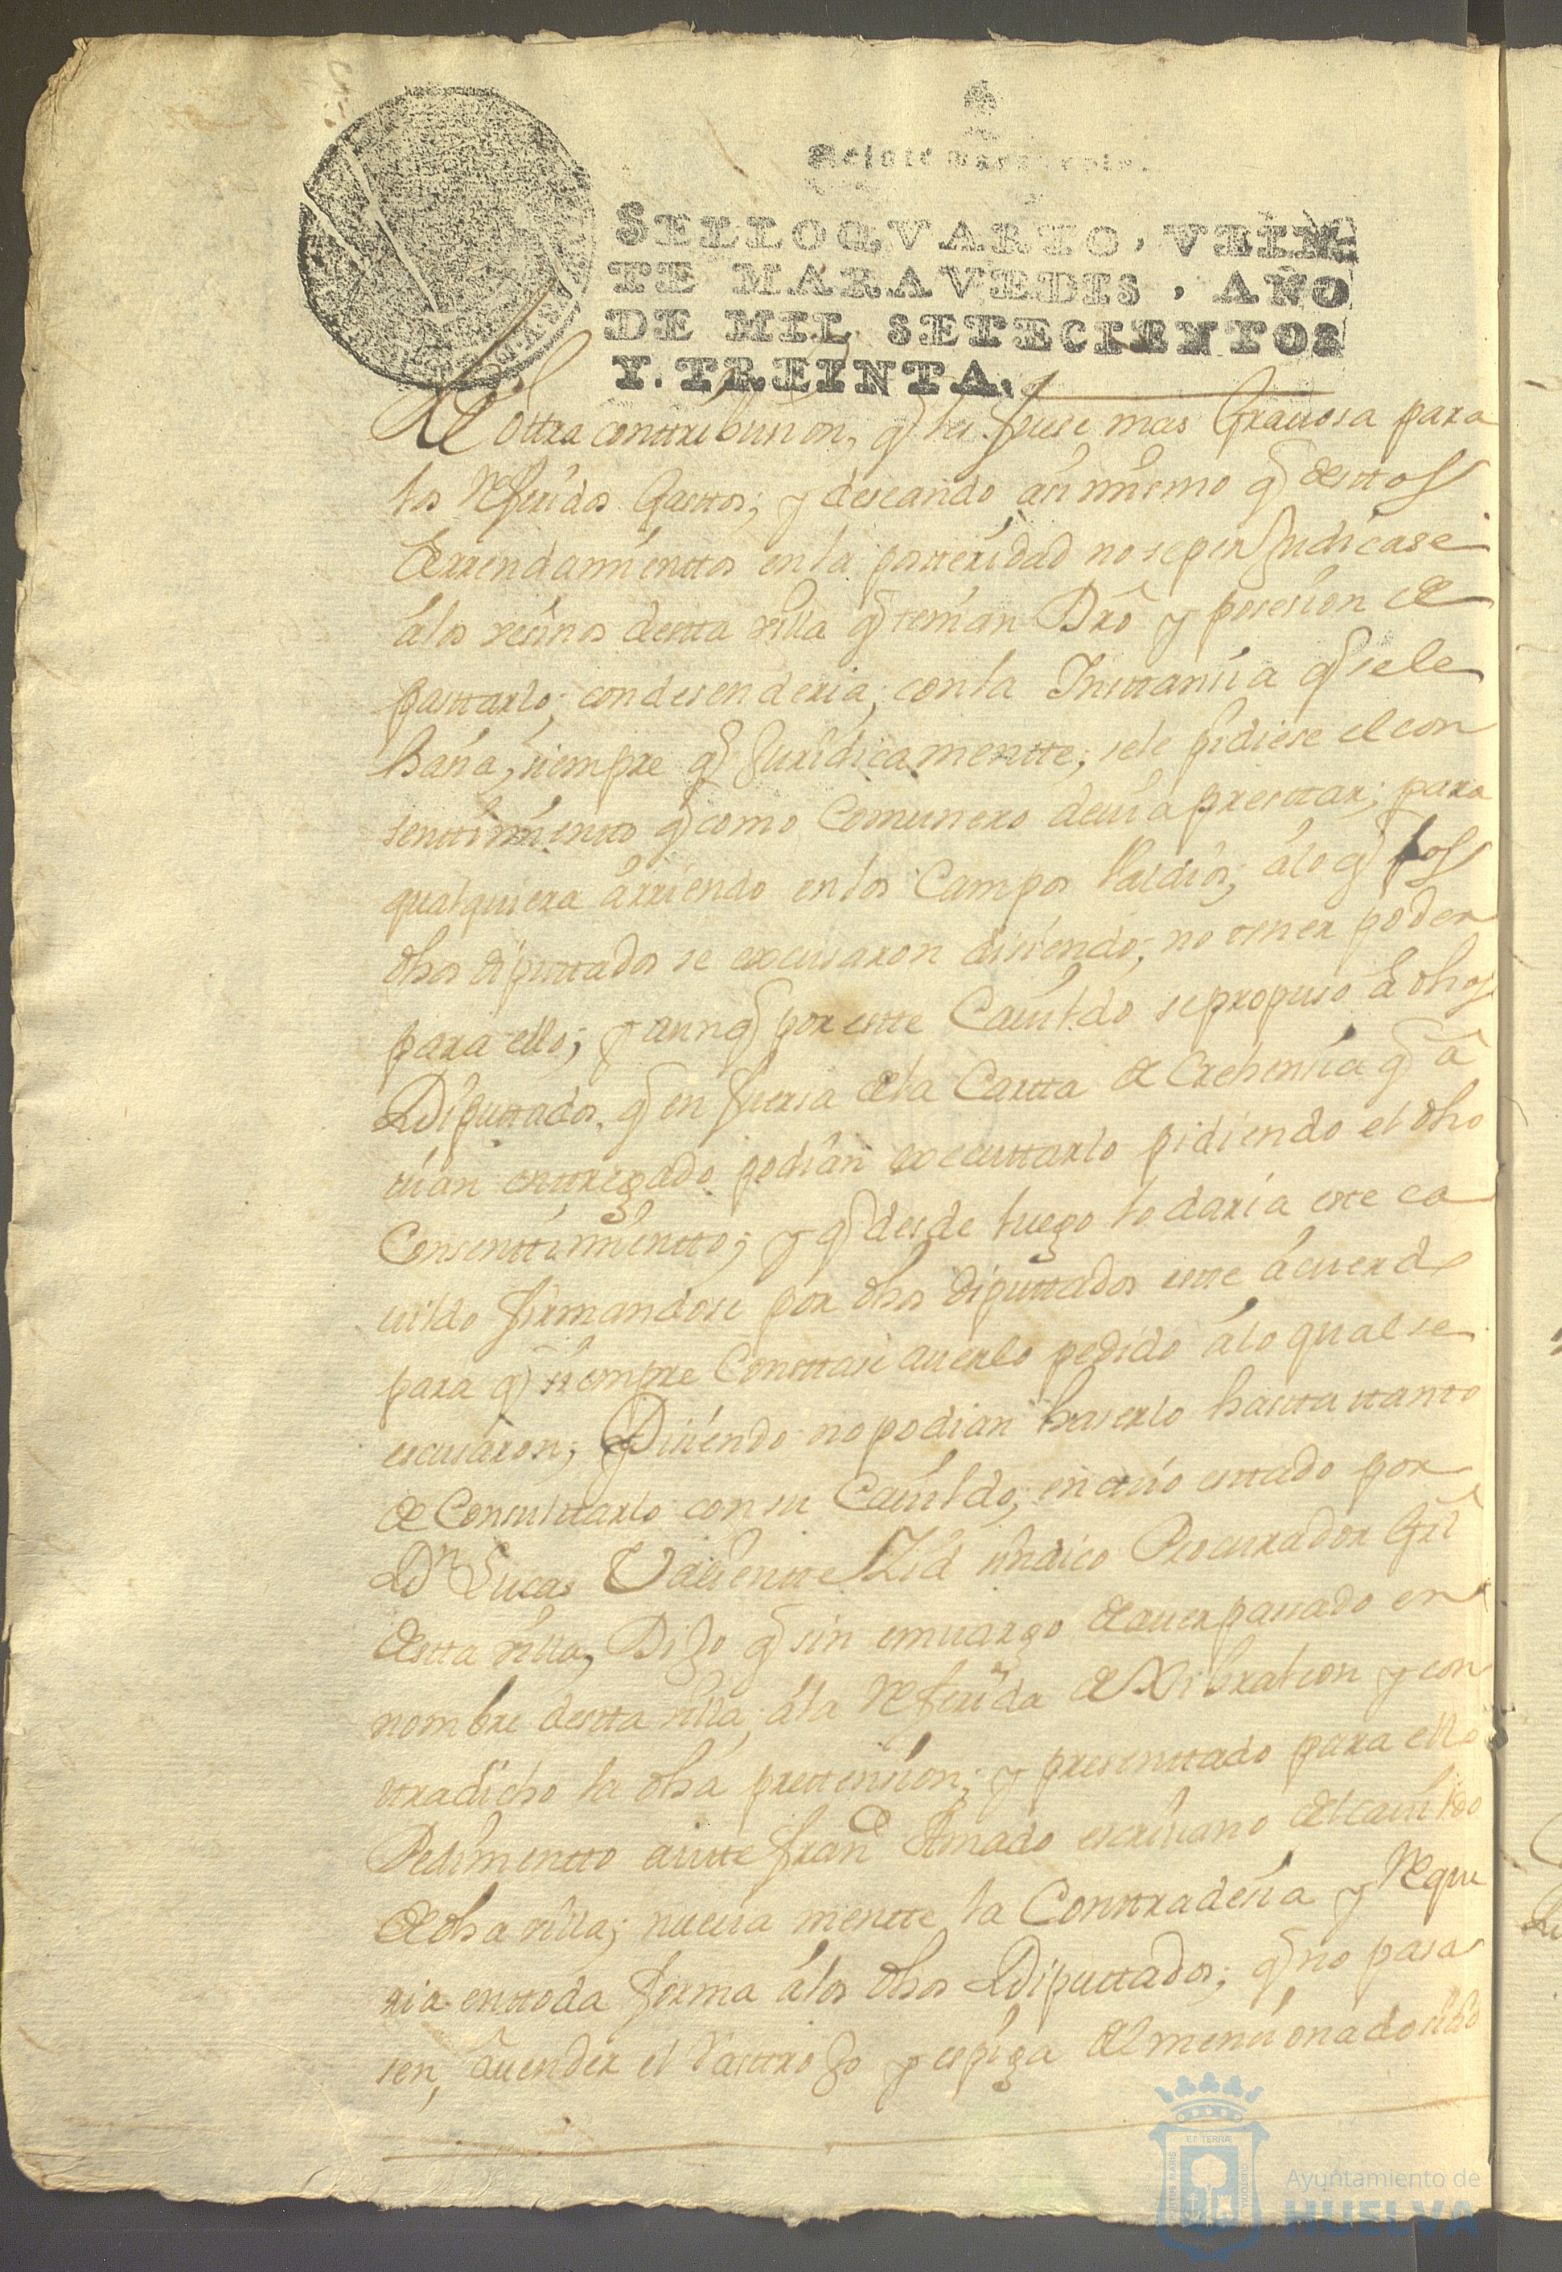 SELLO QVARTO, VEIN-
TE MARAVEDIS, AÑO
DE MIL SETECIENTOS
Y. TREINTA.
de ottra conttribusion, q̃ les fuese mas Grauosa para
los Referidos Gasttos; y deseando asi mismo q̃ desttos
Arrendamienttos en la posteridad no se perjudicase
álos vesinos destta villa q̃ tenian Dr̃o y posesion de
pasttarlo; condesenderia; con la Insttansia q̃ se le
hasia, siempre q̃ Juridicamentte, se le pidiese el con
senttimientto q̃ como Comunero deuia presttar; para
qualquiera árriendo en los Campos Valdios; álo q̃ los
dhos diputtados se excusaron disiendo, no tener poder
para ello; y aunq̃ por estte Cauildo se propuso á dhos
Diputtados, q̃ en fuersa dela Cartta de Crehensia q̃ á
uian enttregado podian executtarlo pidiendo el dho
Consenttimientto; y q̃ desde luego lo daria este ca
uildo firmandose por dhos diputtados este ácuerdo
para q̃ siempre Consttase auerlo pedido álo qual se
escusaron; Disiendo no podian haserlo hastta ttanto
de Consulttarlo con su Cauildo; en cuio esttado por
Dn Lucas Valientte Zid sindico Procurador Grl̃
destta villa, Dijo q̃ sin emuargo de auer passado en
nombre destta villa, ála Referida de Xibraleon y con
ttradicho la dha prettension; y presenttado para ello
Pedimentto antte Franco Amado escriuano del cauildo
de dha villa; nueua mentte la Conttradesia y Reque
ria en ttoda forma álos dhos Diputtados; q̃ no pasa
sen, á uender el Rasttrojo y espiga del mensionado sitio
Ayuntamiento de
HUELVA